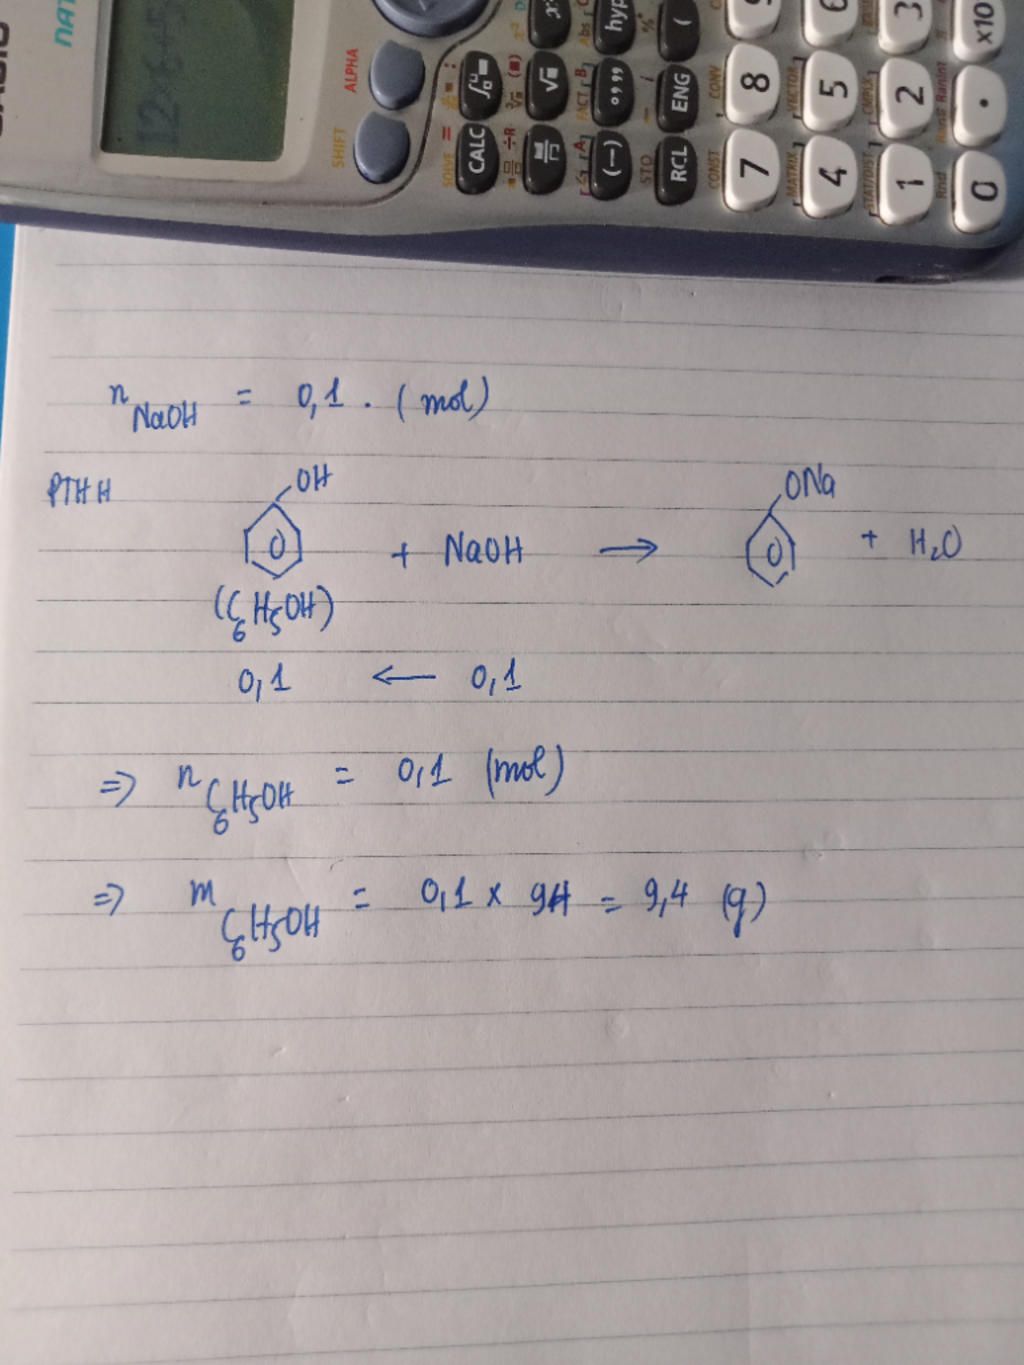 NAT
12×6+5
SHIFT
ALPHA
SOLVE =
CALC
RCL
STO
ENG
hyp
CONST
CONV
7
8
MATRIX
VECTOR
4
5
6
STAT/DIST
CMPLX
1
2
3
Rnd
Ran#
RanInt
0
.
×10
n NaOH = 0,1 . (mol)
PTHH
OH
ONa
+ NaOH → + H₂O
(C₆H₅OH)
0,1 ← 0,1
⇒ n C₆H₅OH = 0,1 (mol)
⇒ m C₆H₅OH = 0,1 × 94 = 9,4 (g)